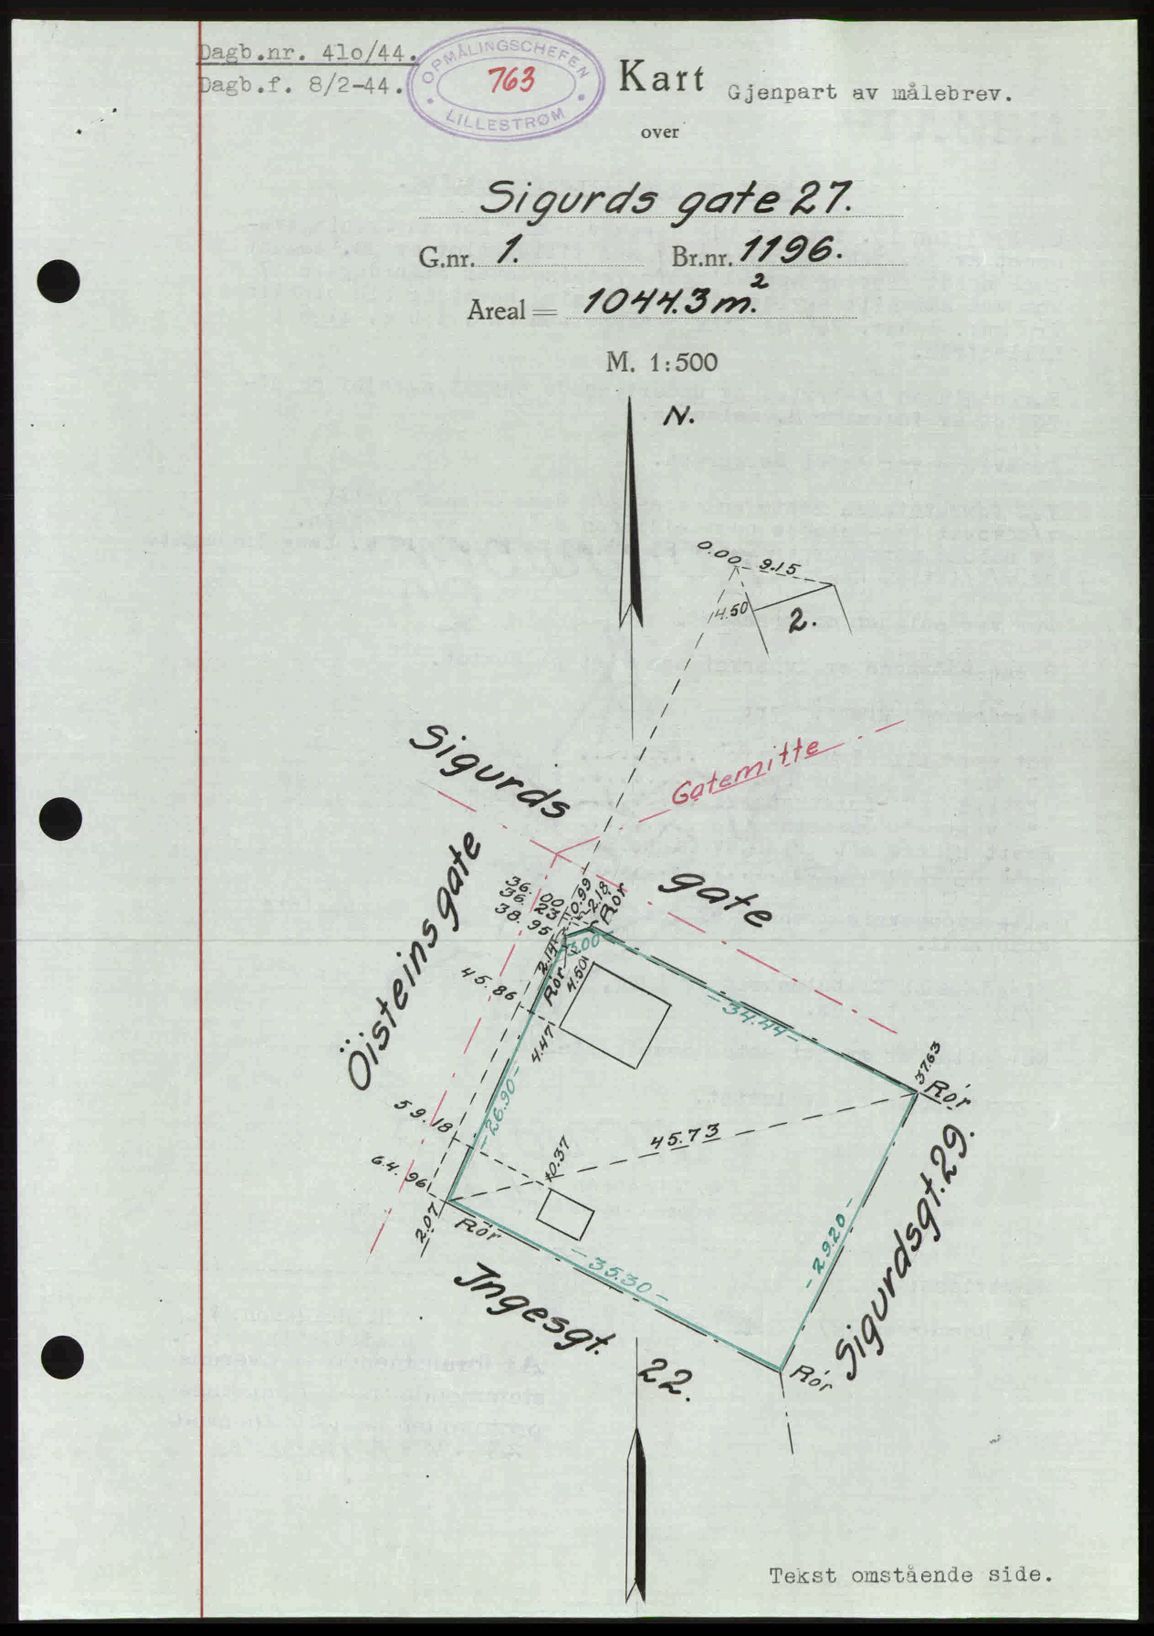 Dagb.nr. 41o/44.
Dagb.f. 8/2-44.
OPMÅLINGSCHEFEN
763
LILLESTRØM
Kart Gjenpart av målebrev.
over
Sigurds gate 27.
G.nr. 1. Br.nr. 1196.
Areal = 1044.3 m.²
M. 1:500
N.
0.00 9.15
4.50
2.
Sigurds
Gatemitte
gate
Öisteinsgate
36.00
36.23
38.95
0.99
2.18
Rör
2.14
3.00
Rör
4.50
45.86
4.47
-34.44-
37.63
Rör
-26.90-
59.18
45.73
10.37
64.96
2.07
Rör
-35.30-
-29.20-
Sigurdsgt. 29.
Ingesgt.
22.
Rör
Tekst omstående side.